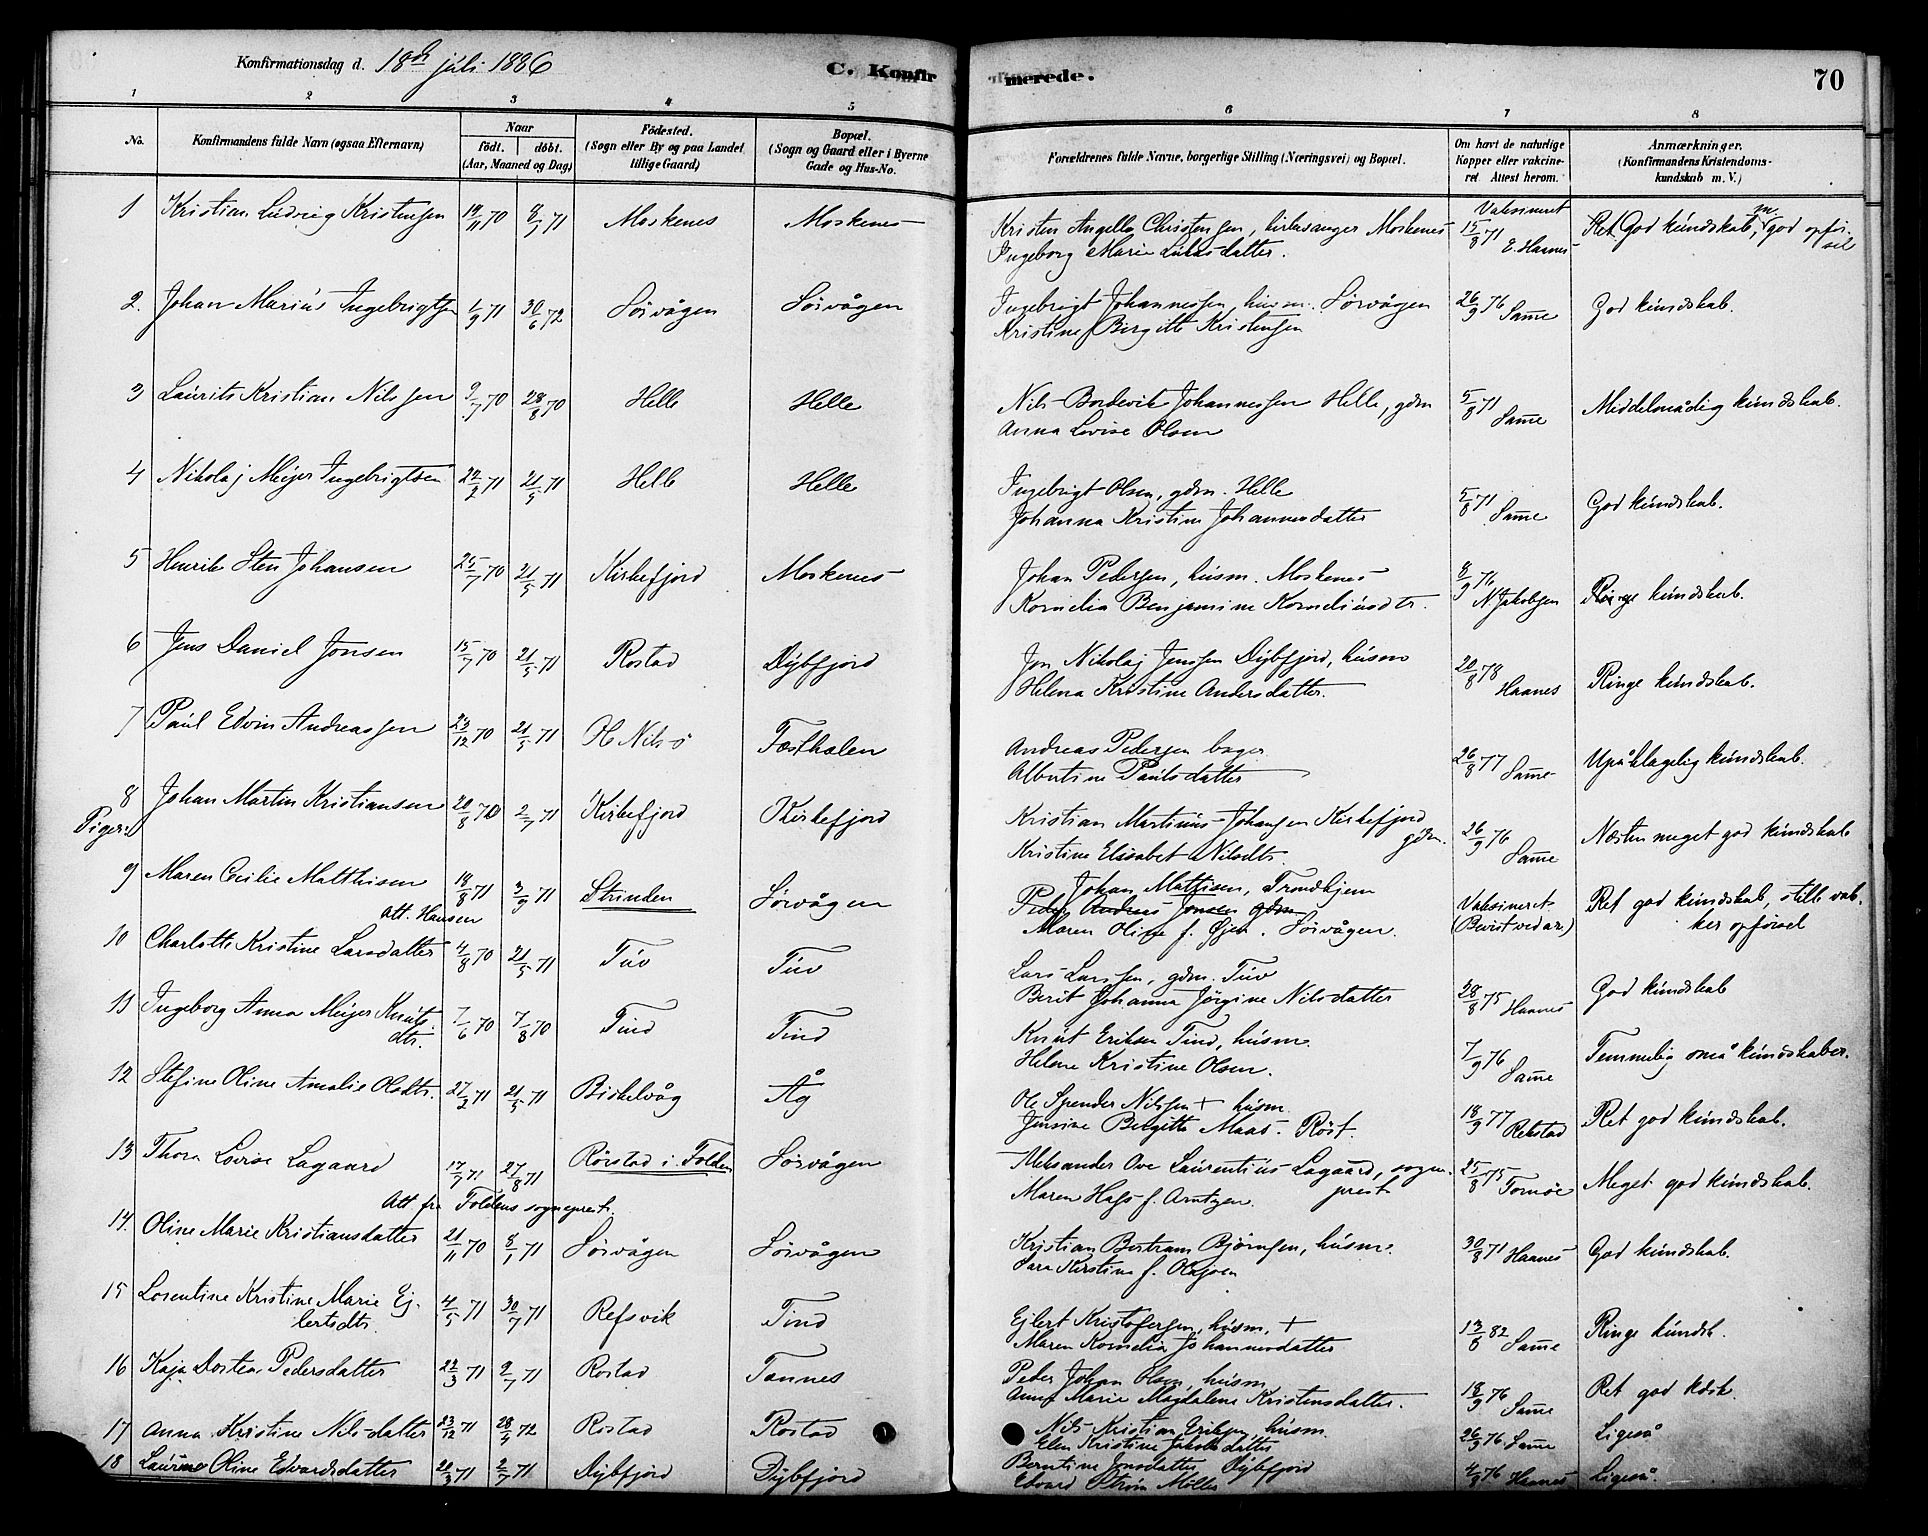 Konfirmationsdag d. 18de juli 1886 C. Konfirmerede. 70
1 2 3 4 5 6 7 8
No. Konfirmandens fulde Navn (ogsaa Efternavn) Naar födt. döbt. (Aar, Maaned og Dag) Födested. (Sogn eller By og paa Landet tillige Gaard) Bopæl. (Sogn og Gaard eller i Byerne Gade og Hus-No. Forældrenes fulde Navne, borgerlige Stilling (Næringsvei) og Bopæl. Om havt de naturlige Kopper eller vakcineret. Attest herom. Anmærkninger. (Konfirmandens Kristendomskundskab m. V.)
1 Kristian Ludvig Kristensen 19/11 70 8/1 71 Moskenes Moskenes Kristen Angell Christensen, kirkesanger Moskenes Vaksineret 15/8 71 E. Haanes Ret God kundskab, m. god opförsel
Ingeborg Marie Lukasdatter.
2. Johan Marius Ingebrigtsen 1/9 71 30/6 72 Sörvågen Sörvågen Ingebrigt Johannessen, husm. Sörvågen 26/9 76 Same God kundskab.
Kristine Birgitte Kristensen
3 Laurits Kristian Nilssen 9/7 70 28/8 70 Helle Helle Nils Bordevik Johannessen Helle, gdm 5/8 71 Same Middelmådig kundskab.
Anna Lovise Olsen
4 Nikolaj Mejer Ingebrigtsen 22/2 71 21/5 71 Helle Helle Ingebrigt Olsen, gdm. Helle 5/8 71 Same God kundskab.
Johanna Kristine Johannesdatter
5 Henrik Sten Johansen 25/7 70 21/5 71 Kirkefjord Moskenes Johan Pedersen, husm. Moskenes 8/9 76 N. Jakobsen Ringe kundskab.
Kornelia Benjamine Korneliusdtr.
6 Jens Daniel Jonsen 15/7 70 21/5 71 Rostad Dybfjord Jon Nikolaj Jenssen Dybfjord, husm 20/8 78 Haanes Ringe kundskab.
Helena Kristine Andersdatter.
7 Paul Edvin Andreassen 23/12 70 21/5 71 Ol Nilsö Festhalen Andreas Pedersen bager 26/8 77 Same Upåklagelig kundskab.
Albertine Paulsdatter
8 Johan Martin Kristiansen 20/8 70 2/7 71 Kirkefjord Kirkefjord Kristian Martinus Johansen Kirkefjord gdm. 26/9 76 Same Næsten meget god kundskab
Kristine Elisabet Nilsdtr.
Piger:
9 Maren Cecilie Matthisen 18/8 71 3/9 71 Strinden Sörvågen Johan Mathisen, Trondhjem Vaksineret (Bevist ved ar.) Ret god kundskab, stille vakker opförsel
att. Hansen Peder Andreas Jonsen gdm
Maren Oline f. Öjen. Sörvågen.
10 Charlotte Kristine Larsdatter 4/8 70 21/5 71 Tuv Tuv Lars Larssen, gdm. Tuv 28/8 75 Haanes God kundskab
Berit Johanna Jörgine Nilsdatter
11 Ingeborg Anna Mejer Knutsdtr. 7/6 70 7/8 70 Tind Tind Knut Eriksen Tind, husm. 7/9 76 Same Temmelig små kundskaber.
Helene Kristine Olsen.
12 Stefine Oline Amalie Olsdtr. 27/2 71 21/5 71 Birkelvåg Åg Ole Spender Nilssen + husm. 18/9 77 Rekstad Ret god kundskab.
Jensine Birgitte Maas. Röst.
13 Thora Lovise Lagaard 17/7 71. 27/8 71 Rörstad i Folden Sörvågen Aleksander Ove Laurentius Lagaard, sogneprest 25/8 75 Tornöe Meget god kundskab.
Att fra Foldens sogneprest. Maren Hass f. Arntzen.
14. Oline Marie Kristiansdatter 21/11 70 8/1 71 Sörvågen Sörvågen Kristian Bertram Björnsen, husm. 30/8 71 Haanes God kundskab.
Sara Kirstine f. Olajsen
15 Lorentine Kristine Marie Ejlertsdtr. 4/5 71 30/7 71 Refsvik Tind Ejlert Kristofersen, husm. + 13/8 82 Same Ringe kundsk.
Maren Kornelia Johannesdatter
16 Kaja Dortea Pedersdatter 22/3 71 2/7 71 Rostad Tannes Peder Johan Olsen husm 18/9 76 Same Ret god kdsk.
Anne Marie Magdalene Kristensdatter.
17 Anna Kristine Nilsdatter 23/12 71 28/4 72 Rostad Rostad Nils Kristian Eriksen, husm. 26/9 76 Same Ligeså
Elen Kristine Jakobsdatter
18 Laurine Oline Edvardsdatter 20/3 71 2/7 71 Dybfjord Dybfjord Berntine Jonsdatter Dybfjord 4/8 76 Haanes Ligeså.
Edvard Ström Möller